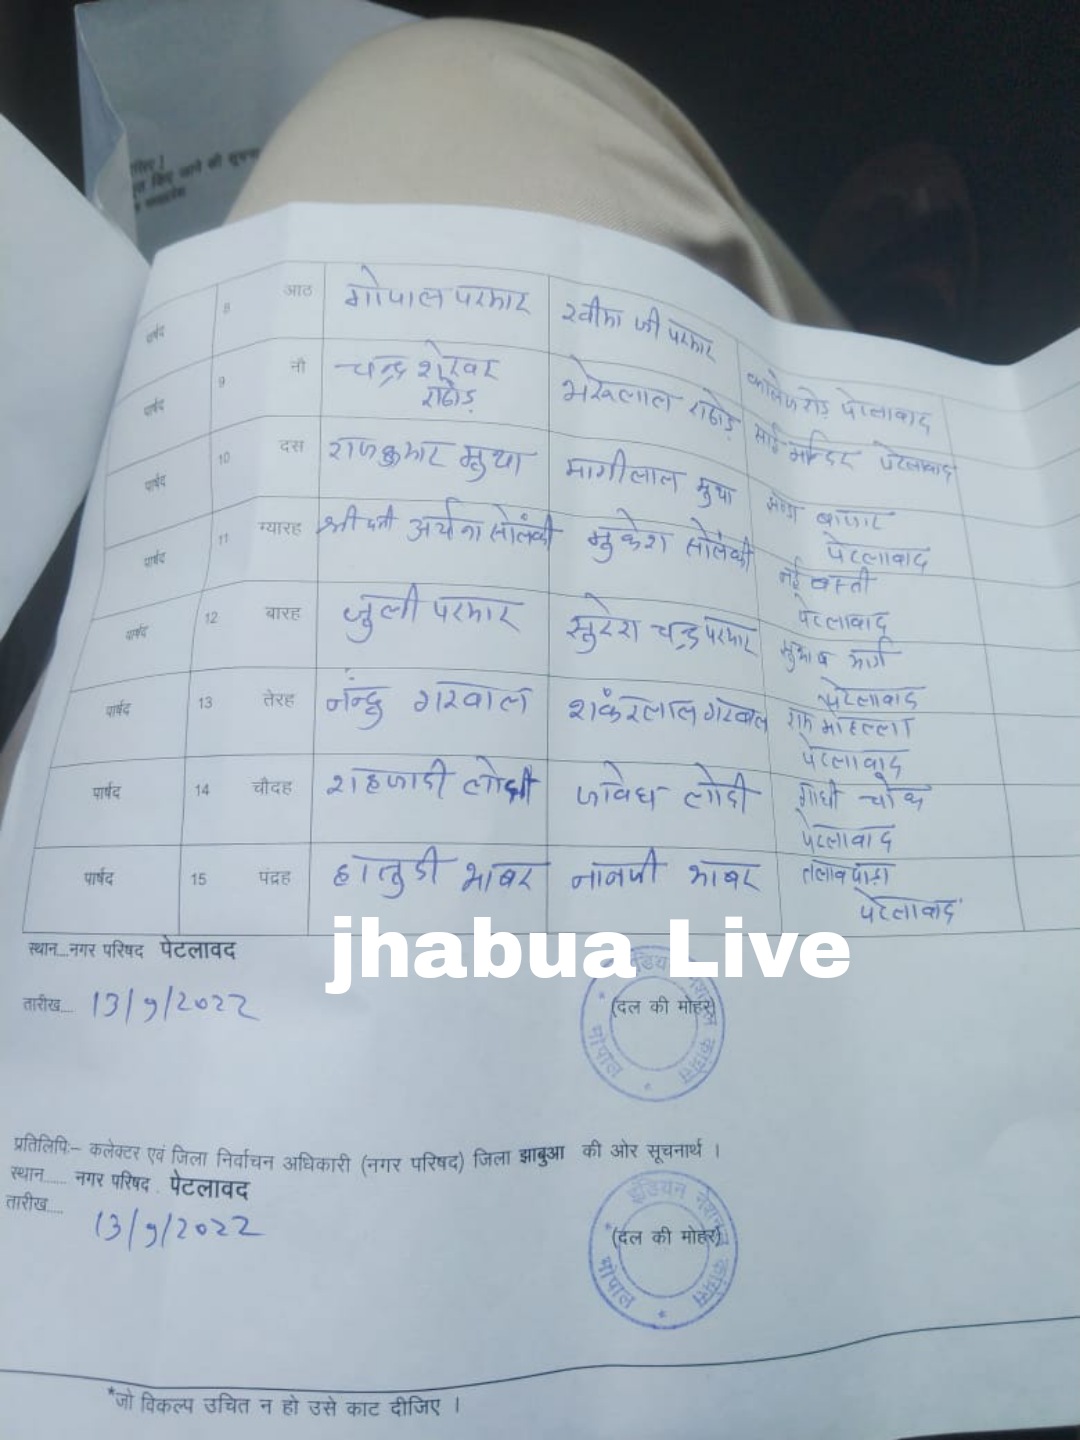 पार्षद 8 आठ गोपाल परमार खीमा जी परमार कालेज रोड़ पेटलावाद
पार्षद 9 नौ चन्द्र शेखर राठोड़ भेरूलाल राठोड़ साई मन्दिर पेटलावाद
पार्षद 10 दस राजकुमार मुथा मागीलाल मुथा बाजार
पेटलावाद
पार्षद 11 ग्यारह श्रीमती अर्चना सोलंकी मुकेश सोलंकी नई बस्ती
पेटलावाद
पार्षद 12 बारह जुली परमार सुरेश चन्द्र परमार सुभाष मार्ग
पेटलावाद
पार्षद 13 तेरह नंन्दु गरवाल शकंरलाल गरवाल राम मोहल्ला
पेटलावाद
पार्षद 14 चौदह शहजादी लोदी जावेध लोदी गांधी चौक
पेटलावाद
पार्षद 15 पंद्रह हालुडी भाबर नानजी भाबर तलावपाड़ा
पेटलावाद
jhabua Live
स्थान...नगर परिषद पेटलावद
तारीख.... 13/9/2022
(दल की मोहर)
इंडियन नेशनल कांग्रेस भोपाल
प्रतिलिपिः- कलेक्टर एवं जिला निर्वाचन अधिकारी (नगर परिषद) जिला झाबुआ की ओर सूचनार्थ ।
स्थान...... नगर परिषद . पेटलावद
तारीख..... 13/9/2022
(दल की मोहर)
इंडियन नेशनल कांग्रेस भोपाल
*जो विकल्प उचित न हो उसे काट दीजिए ।